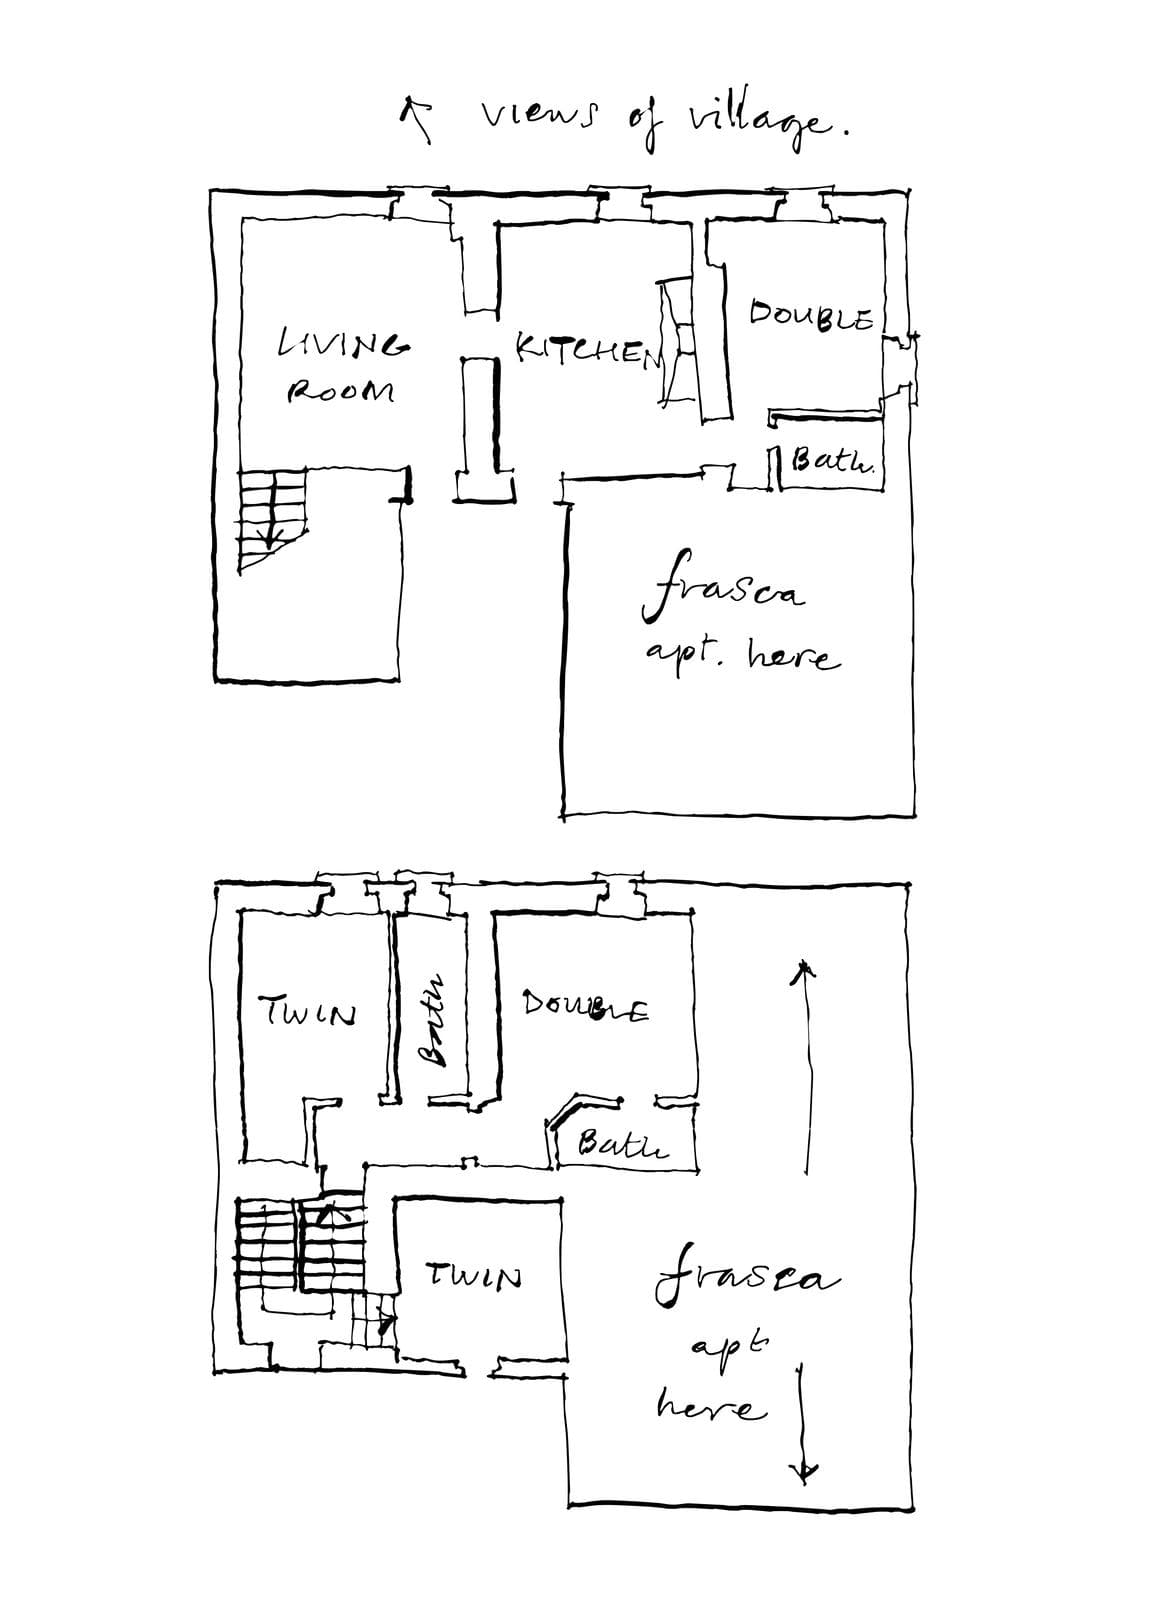 views of village.
LIVING
ROOM
KITCHEN
DOUBLE
Bath.
frasca
apt. here
TWIN
Bath
DOUBLE
Bath
TWIN
frasca
apt
here